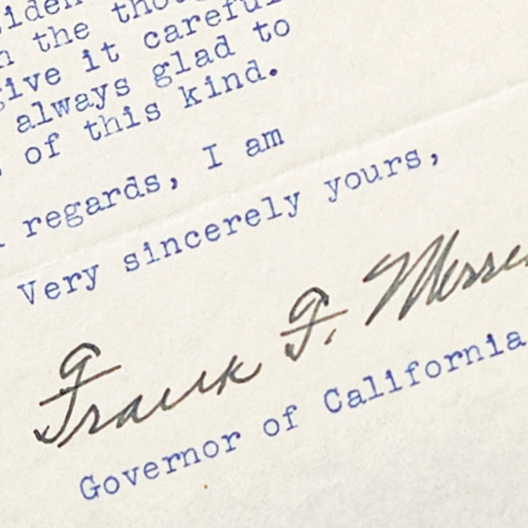 the
give it careful
always glad to
of this kind.
regards, I am
Very sincerely yours,
Frank F.
Governor of California